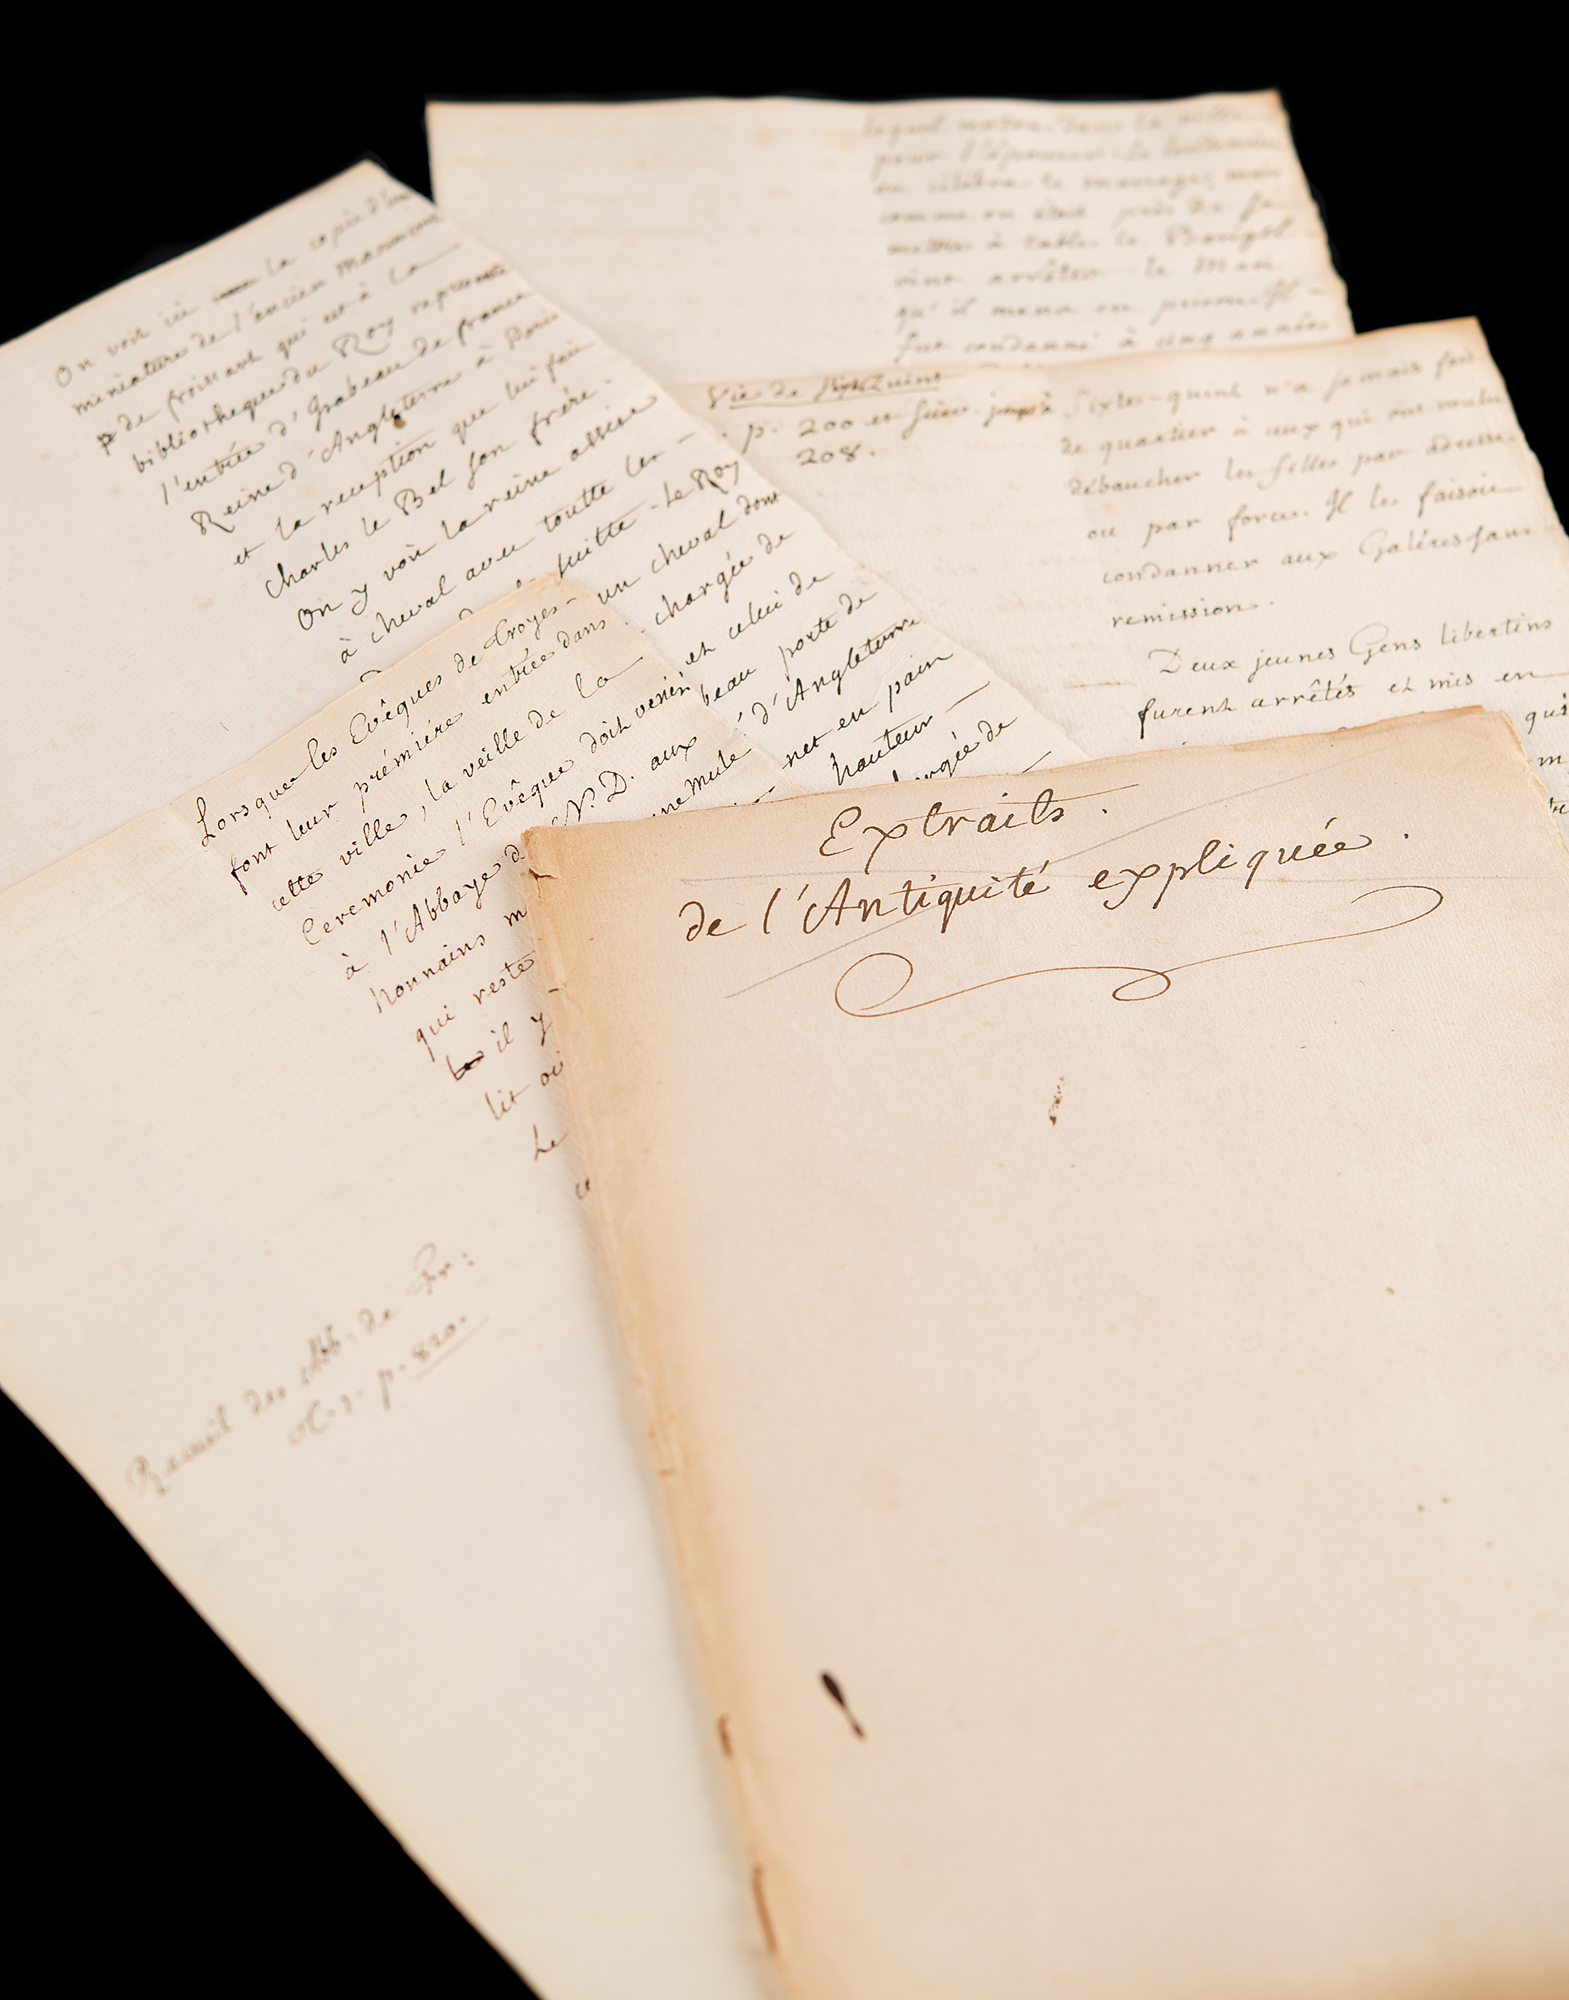 On voit ici la copie d'une
miniature de l'ancien manuscrit
de froissart qui est à la
bibliotheque du Roy represente
l'entrée d'Isabeau de france
Reine d'Angleterre à Paris
et la reception que lui fait
Charles le Bel son frére.
On y voit la reine assise
à cheval avec toutte les
suitte. Le Roy
un cheval dont
chargée de
et celui de
beau porte de
d'Angleterre
une mule net en pain
hauteur
de
pour l'épouser.
on célébra le mariage, mais
comme on étoit prés de se
mettre à table le Barigel
vint arrêter le Mari
qu'il mena en prison. Il
fut condanné à cinq années
Vie de Sixte Quint
p. 200 et suiv. jusqu'à
208.
Sixte-quint n'a jamais fait
de quartier à ceux qui ont voulu
débaucher les filles par adresse
ou par force. Il les faisoit
condanner aux Galéres sans
remission.
Deux jeunes Gens libertins
furent arrêtés et mis en
qui
Lorsque les Evêques de Troyes
font leur prémiére entrée dans
cette ville, la veille de la
Ceremonie l'Evêque doit venir
à l'Abbaye de N. D. aux
Nonnains
qui reste
il y
lit où
Le
ce
Recueil des Abb. de Fr:
p. 820.
Extraits.
de l'Antiquité expliquée.